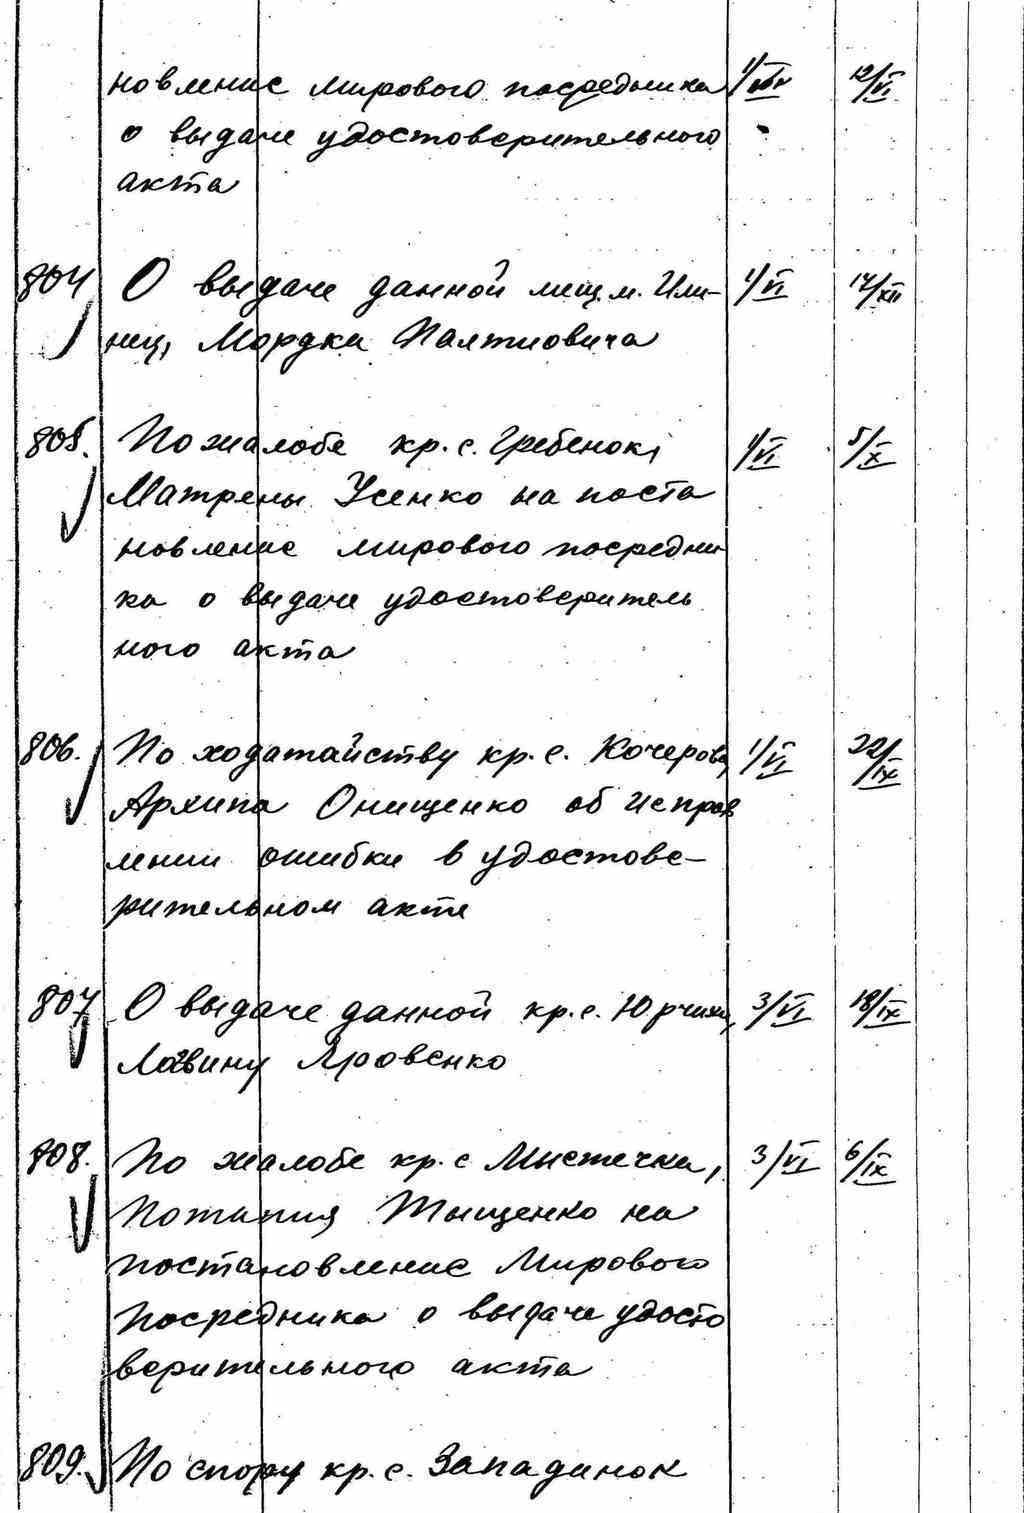 новление мирового посредника 12/VI
о выдаче удостоверительного
акта
804 О выдаче данной мещ. м. Или- 1/VI 17/XII
нец, Мордки Палтиовича
805. По жалобе кр. с. Гребенок, 1/VI 5/X
Матрены Усенко на поста
новление мирового посредни
ка о выдаче удостоверитель
ного акта
806. По ходатайству кр. с. Кочерова, 1/VI 22/IX
Архипа Онищенко об исправ
лении ошибки в удостове-
рительном акте
807 О выдаче данной кр. с. Юрчихи, 3/VI 18/IX
Лавину Яровенко
808. По жалобе кр. с Мистечка, 3/VI 6/IX
Потапия Тыщенко на
постановление Мирового
Посредника о выдаче удосто
верительного акта
809. По спору кр. с. Западинок